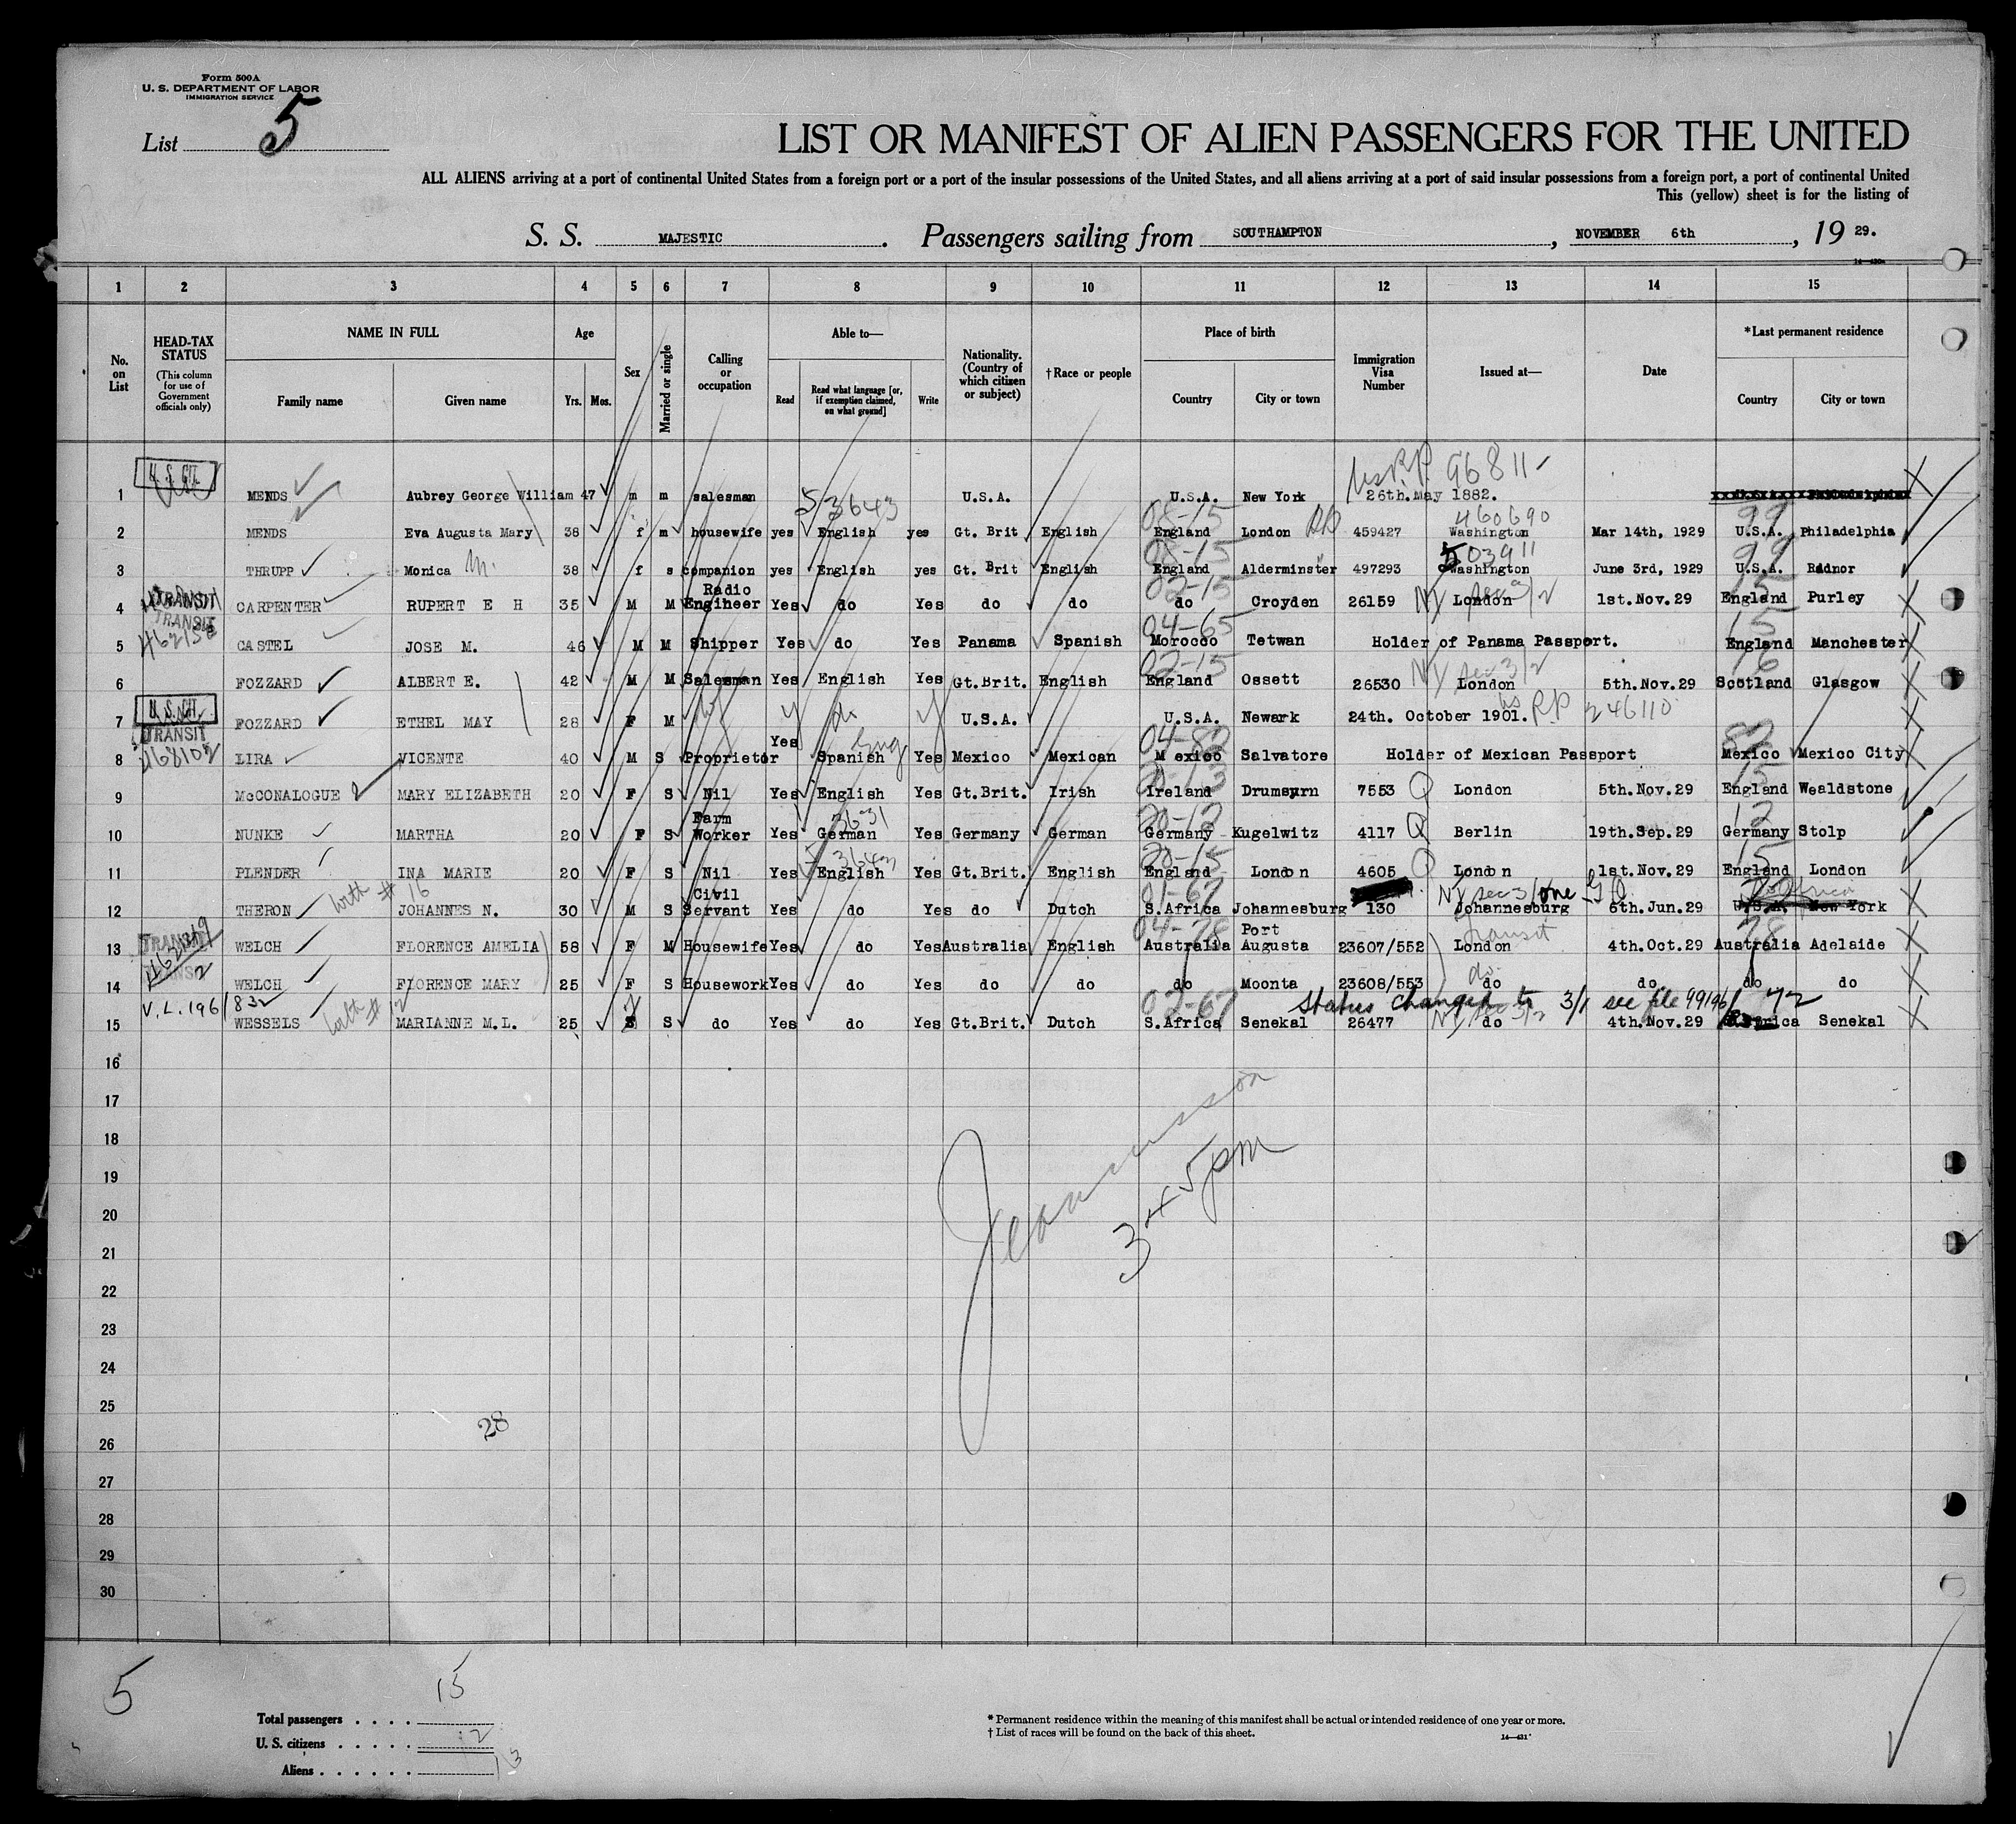 Form 500A
U. S. DEPARTMENT OF LABOR
IMMIGRATION SERVICE
List 5
LIST OR MANIFEST OF ALIEN PASSENGERS FOR THE UNITED
ALL ALIENS arriving at a port of continental United States from a foreign port or a port of the insular possessions of the United States, and all aliens arriving at a port of said insular possessions from a foreign port, a port of continental United
This (yellow) sheet is for the listing of
S. S. MAJESTIC. Passengers sailing from SOUTHAMPTON, NOVEMBER 6th, 19 29.
1 2 3 4 5 6 7 8 9 10 11 12 13 14 15
No. on List
HEAD-TAX STATUS
(This column for use of Government officials only)
NAME IN FULL
Family name Given name
Age
Yrs. Mos.
Sex
Married or single
Calling or occupation
Able to—
Read Read what language [or, if exemption claimed, on what ground] Write
Nationality. (Country of which citizen or subject)
†Race or people
Place of birth
Country City or town
Immigration Visa Number
Issued at—
Date
*Last permanent residence
Country City or town
96811
1 U.S. CIT. MENDS Aubrey George William 47 m m salesman U.S.A. U.S.A. New York 26th.May 1882.
53643 08-15 460690 99
2 MENDS Eva Augusta Mary 38 f m housewife yes English yes Gt. Brit English England London 459427 Washington Mar 14th, 1929 U.S.A. Philadelphia
08-15 503911 99
3 THRUPP Monica M. 38 f s companion yes English yes Gt. Brit English England Alderminster 497293 Washington June 3rd, 1929 U.S.A. Radnor
02-15 15
4 TRANSIT CARPENTER RUPERT E H 35 M M Radio Engineer Yes do Yes do do do Croyden 26159 NY London 1st.Nov.29 England Purley
TRANSIT 04-65 15
5 CASTEL JOSE M. 46 M M Shipper Yes do Yes Panama Spanish Morocco Tetwan Holder of Panama Passport. England Manchester
02-15 NY sec 3/2 16
6 FOZZARD ALBERT E. 42 M M Salesman Yes English Yes Gt.Brit. English England Ossett 26530 London 5th.Nov.29 Scotland Glasgow
7 U.S. CIT. FOZZARD ETHEL MAY 28 F M U.S.A. U.S.A. Newark 24th. October 1901. 246110
TRANSIT 468102 Eng 04-82 82
8 LIRA VICENTE 40 M S Proprietor Yes Spanish Yes Mexico Mexican Mexico Salvatore Holder of Mexican Passport Mexico Mexico City
15
9 McCONALOGUE MARY ELIZABETH 20 F S Nil Yes English Yes Gt.Brit. Irish Ireland Drumsurn 7553 Q London 5th.Nov.29 England Wealdstone
3631 20-12 12
10 NUNKE MARTHA 20 F S Farm Worker Yes German Yes Germany German Germany Kugelwitz 4117 Q Berlin 19th.Sep.29 Germany Stolp
53643 20-15 15
11 PLENDER INA MARIE 20 F S Nil Yes English Yes Gt.Brit. English England London 4605 Q London 1st.Nov.29 England London
with # 16 01-67 NY sec 3/one
12 THERON JOHANNES N. 30 M S Civil Servant Yes do Yes do Dutch S.Africa Johannesburg 130 Johannesburg 5th.Jun.29 U.S.A. New York
TRANSIT 04-78 Transit 78
13 WELCH FLORENCE AMELIA 58 F M Housewife Yes do Yes Australia English Australia Port Augusta 23607/552 London 4th.Oct.29 Australia Adelaide
do
14 WELCH FLORENCE MARY 25 F S Housework Yes do Yes do do do Moonta 23608/553 do do do do
V.L. 196/832 with # 12 02-67 Status changed to 3/1 see file 99196/ 72
15 WESSELS MARIANNE M.L. 25 S do Yes do Yes Gt.Brit. Dutch S.Africa Senekal 26477 NY sec 3/2 do 4th.Nov.29 Senekal
16
17
18
19
20
21
22
23
24
25
26
27
28
29
30
3 45 pm
28
5
Total passengers . . . . 15
U. S. citizens . . . . . 2
Aliens . . . . . . 13
* Permanent residence within the meaning of this manifest shall be actual or intended residence of one year or more.
† List of races will be found on the back of this sheet.
14—421